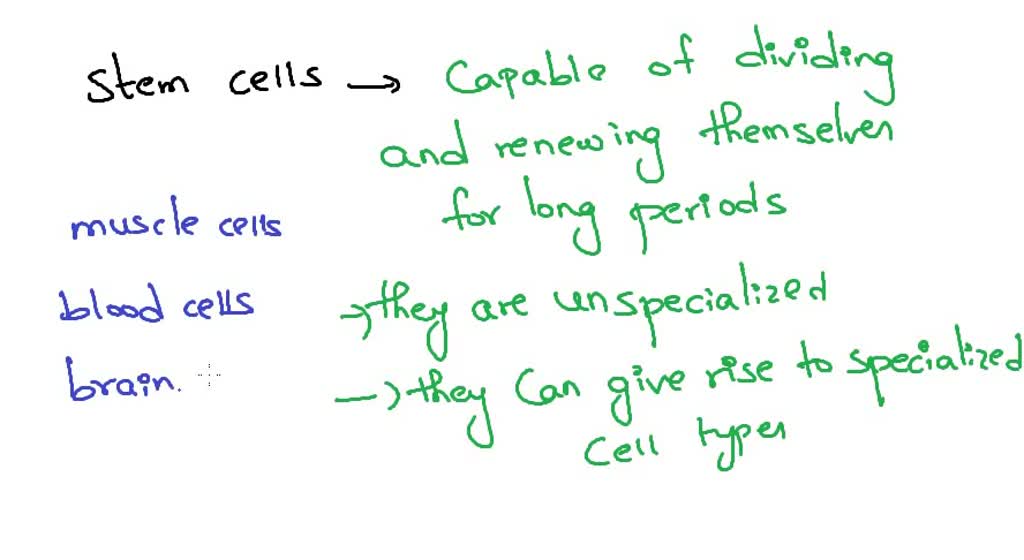 Stem cells → Capable of dividing
and renewing themselves
for long periods
muscle cells
blood cells
brain.
→ they are unspecialized
→ they can give rise to specialized
cell types